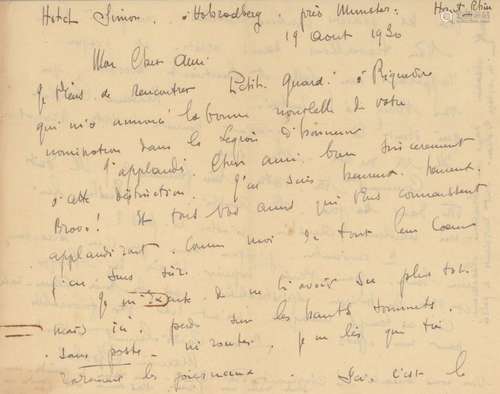 Hotel Simon. à Hohrodberg. près Munster. Haut Rhin
19 Aout 1930
Mon Cher Ami.
Je viens de rencontrer Petit. Guard. à Riquewihr
qui m'a annoncé la bonne nouvelle de votre
nomination dans la Légion d'honneur
J'applaudis. Cher ami. bien sincèrement
à cette distinction. J'en suis heureux. heureux.
Bravo! Et tous vos amis qui vous connaissent
applaudiront. comme moi de tout leur Coeur
J'en suis sûr.
Je m'excuse de ne l'avoir su plus tôt.
mais ici. perdu sur les hauts sommets.
sans poste. ni routes. je ne lis que très
rarement les journaux. Ici. c'est le